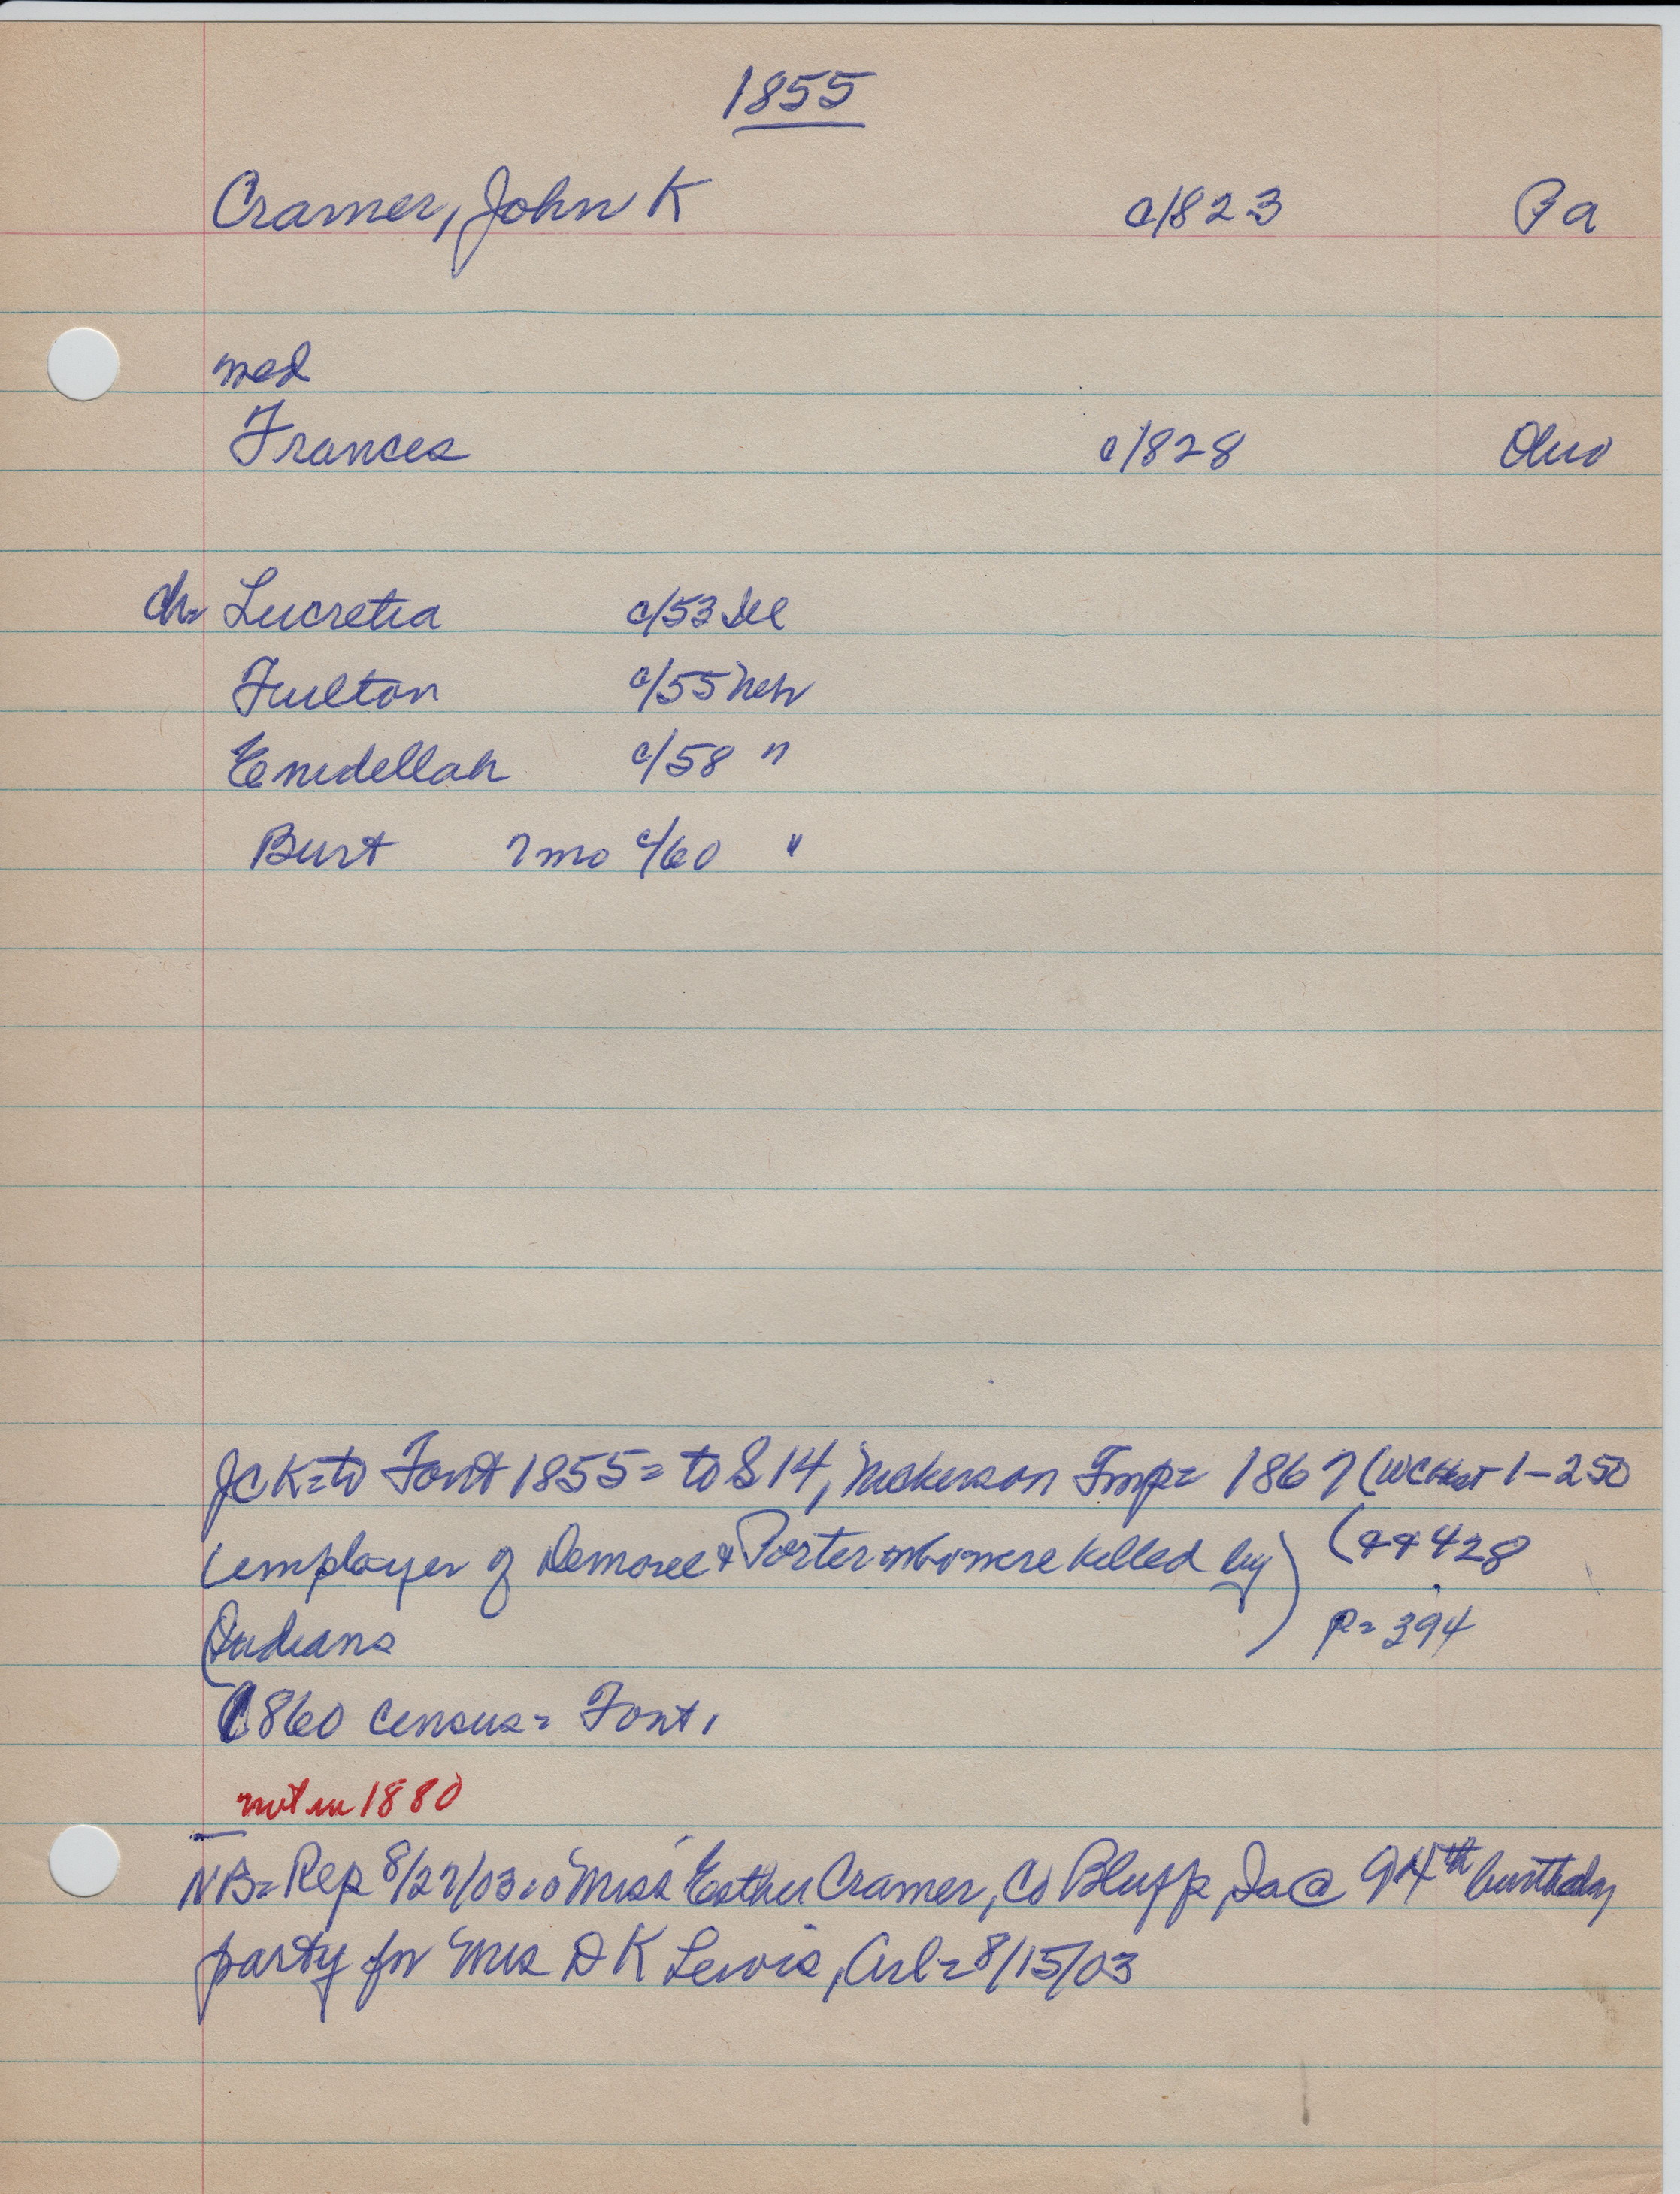 1855
Cramer, John K c/823 Pa
med
Frances c/828 Ohio
ch= Lucretia c/53 Ill
Fulton c/55 Neb
Enidellah c/58 "
Burt 7mo c/60 "
JCK=to Font 1855= to S 14, Nickerson Tmp= 1867 (WCHist 1-250
(employer of Demoree & Porter who were killed by) (A+ 428
Indians p= 394
1860 census= Font,
not in 1880
NB= Rep 8/27/03 Miss Esther Cramer, Co Bluffs, Ia @ 94th birthday
party for Mrs D K Lewis, Arl= 8/15/03